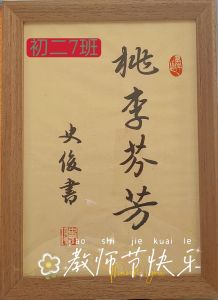 初二7班
桃李芬芳
史俊書
jiao shi jie kuai le
教师节快乐